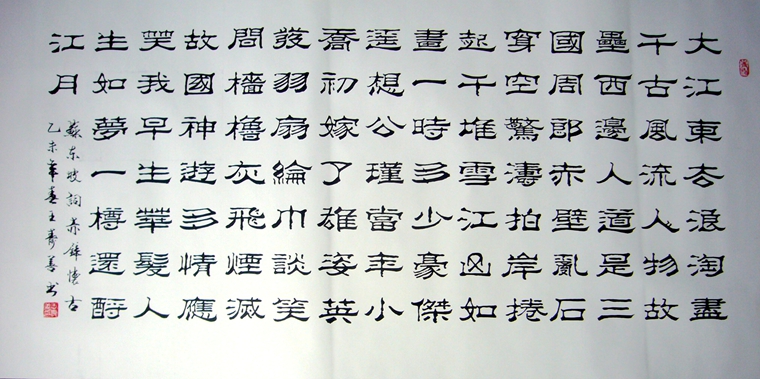 大江東去浪淘盡
千古風流人物故
壘西邊人道是三
國周郎赤壁亂石
穿空驚濤拍岸捲
起千堆雪江山如
畫一時多少豪傑
遥想公瑾當年小
喬初嫁了雄姿英
發羽扇綸巾談笑
間檣櫓灰飛煙滅
故國神遊多情應
笑我早生華髮人
生如夢一樽還酹
江月
蘇东坡詞赤壁懷古
乙未年春王寿善书